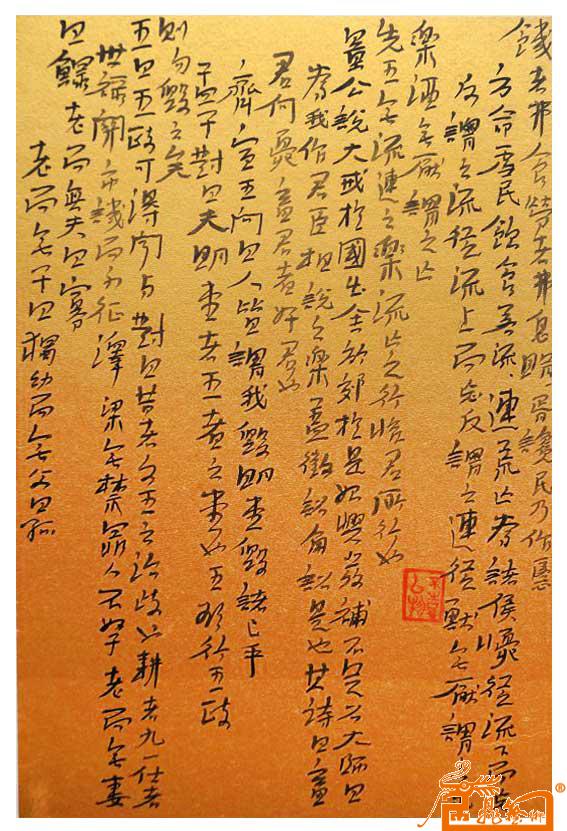 饑者弗食勞者弗息睊睊胥讒民乃作慝
方命虐民飲食若流流連荒亡為諸侯憂從流下而忘
反謂之流從流上而忘反謂之連從獸無厭謂之
樂酒無厭謂之亡
先王無流連之樂荒亡之行惟君所行也
景公說大戒於國出舍於郊於是始興發補不足召大師曰
為我作君臣相說之樂蓋徵招角招是也其詩曰畜
君何憂畜君者好君也
齊宣王問曰人皆謂我毀明堂毀諸已乎
孟子對曰夫明堂者王者之堂也王欲行王政
則勿毀之矣
王曰王政可得聞與對曰昔者文王之治岐也耕者九一仕者
世祿關市譏而不征澤梁無禁罪人不孥老而無妻
曰鰥老而無夫曰寡
老而無子曰獨幼而無父曰孤